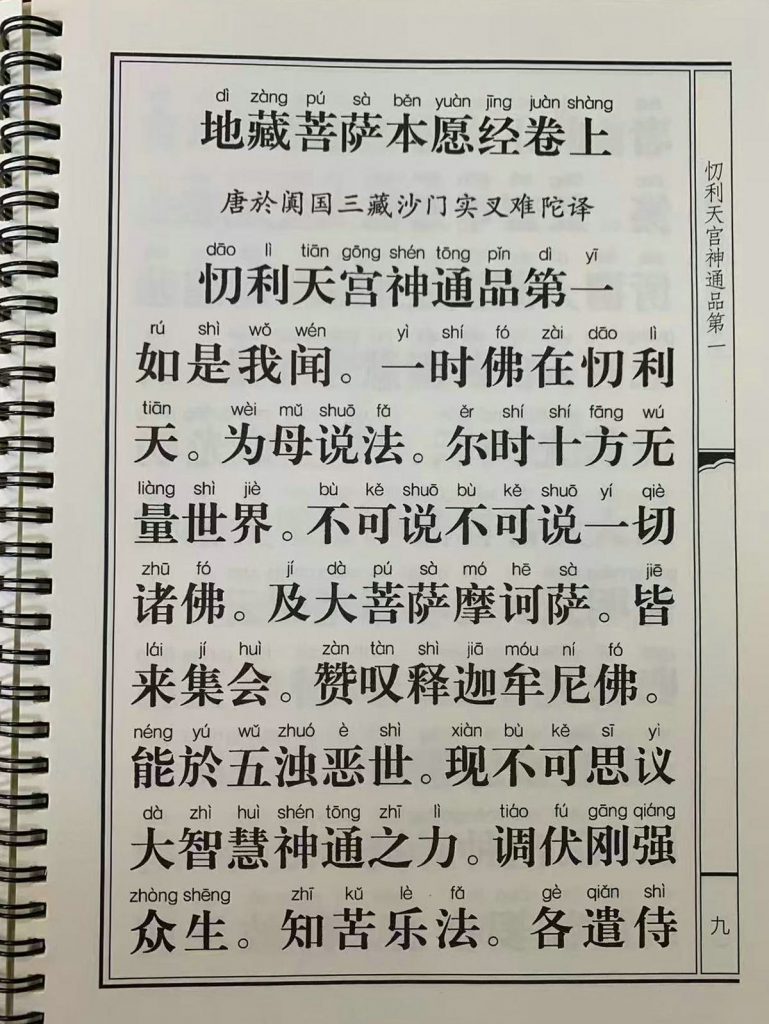 dì zàng pú sà běn yuàn jīng juàn shàng
地藏菩萨本愿经卷上
唐於阗国三藏沙门实叉难陀译
dāo lì tiān gōng shén tōng pǐn dì yī
忉利天宫神通品第一
rú shì wǒ wén yì shí fó zài dāo lì
如是我闻。一时佛在忉利
tiān wèi mǔ shuō fǎ ěr shí shí fāng wú
天。为母说法。尔时十方无
liàng shì jiè bù kě shuō bù kě shuō yí qiè
量世界。不可说不可说一切
zhū fó jí dà pú sà mó hē sà jiē
诸佛。及大菩萨摩诃萨。皆
lái jí huì zàn tàn shì jiā móu ní fó
来集会。赞叹释迦牟尼佛。
néng yú wǔ zhuó è shì xiàn bù kě sī yì
能於五浊恶世。现不可思议
dà zhì huì shén tōng zhī lì tiáo fú gāng qiáng
大智慧神通之力。调伏刚强
zhòng shēng zhī kǔ lè fǎ gè qiǎn shì
众生。知苦乐法。各遣侍
忉利天宫神通品第一
九